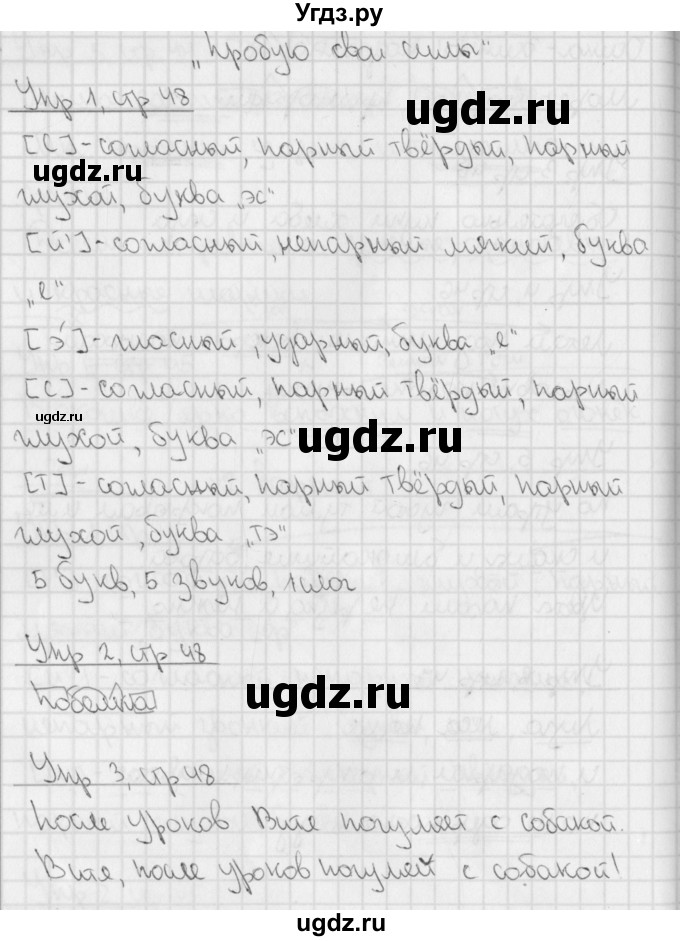 Угдз.ру
„Пробую свои силы"
Упр 1, стр 48
ugdz.ru
[С]-согласный, парный твёрдый, парный
ugdz.ru
глухой, буква „эс"
[й']-согласный, непарный мягкий, буква
„е"
[э́]-гласный, ударный, буква „е"
[С]-согласный, парный твёрдый, парный
ugdz.ru
глухой, буква „эс"
ugdz.ru
[Т]-согласный, парный твёрдый, парный
глухой, буква „тэ"
5 букв, 5 звуков, 1 слог
Упр 2, стр 48
ugdz.ru
побелка
Упр 3, стр 48
ugdz.ru
После уроков Витя погуляет с собакой.
Витя, после уроков погуляй с собакой!
ugdz.ru